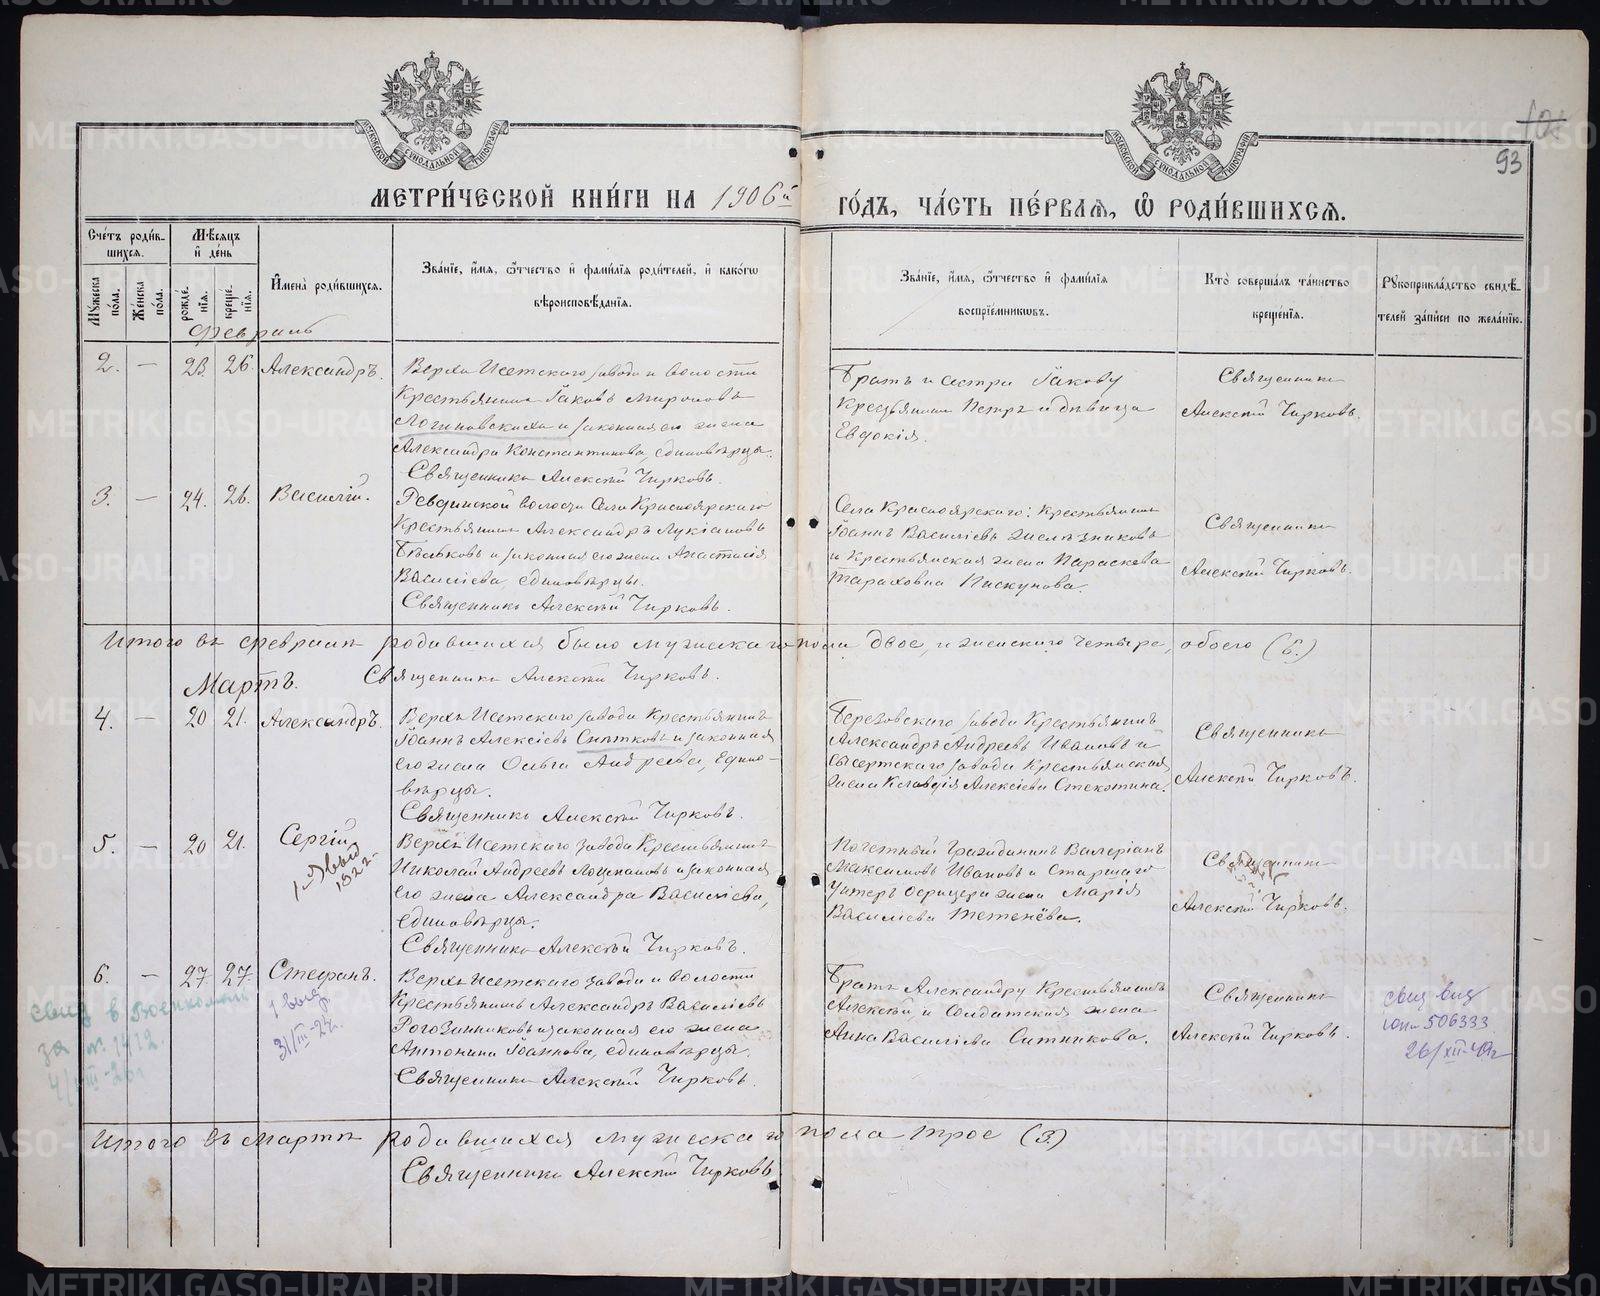 105
93
МОСКОВСКОЙ СѴНОДАЛЬНОЙ ТИПОГРАФІИ
МОСКОВСКОЙ СѴНОДАЛЬНОЙ ТИПОГРАФІИ
МЕТРИ́ЧЕСКОЙ КНИ́ГИ НА 1906й ГО́ДЪ, ЧА́СТЬ ПЕ́РВАЯ, Ѡ҆ РОДИ́ВШИХСЯ.
Сче́тъ роди́в-
шихся.
Мѣ́сяцъ
и҆ де́нь
Мꙋ́жеска по́ла.
Же́нска по́ла.
рожде́-
нїя.
креще́-
нїя.
И҆мена̀ роди́вшихся.
Зва́нїе, и҆́мя, ѻ҆́тчество и҆ фамѝлїя роди́телей, и҆ како́гѡ
вѣроисповѣ́данїя.
Зва́нїе, и҆́мя, ѻ҆́тчество и҆ фамѝлїя
воспрїе́мникѡвъ.
Кто̀ соверша́лъ та́инство
креще́нїя.
Рꙋкоприкла́дство свидѣ́-
телей за́писи по жела́нїю.
Февраль
2. — 23. 26. Александръ.
Верхъ Исетскаго завода и волости
Крестьянинъ Іаковъ Мироновъ
Логиновскихъ и законная его жена
Александра Константинова, единовѣрцы.
Священникъ Алексѣй Чирковъ.
Братъ и сестра Іакову
Крестьянинъ Петръ и дѣвица
Евдокія.
Священникъ
Алексѣй Чирковъ.
3. — 24. 26. Василій.
Ревдинской волости Села Краснояркаго
Крестьянинъ Александръ Лукіановъ
Бѣльковъ и законная его жена Анастасія
Василіева, единовѣрцы.
Священникъ Алексѣй Чирковъ.
Села Красноярского: Крестьянинъ
Іоаннъ Василіевъ Желѣзниковъ
и Крестьянская жена Параскева
Тарахова Пискунова.
Священникъ
Алексѣй Чирковъ.
Итого въ февралѣ родившихся было мужскаго пола двое, и женскаго четыре, обоего (6.)
Священникъ Алексѣй Чирковъ.
Мартъ.
4. — 20 21. Александръ.
Верхъ Исетскаго завода Крестьянинъ
Іоаннъ Алексіевъ Сиптковъ и законная
его жена Ольга Андреева, Едино-
вѣрцы.
Священникъ Алексѣй Чирковъ.
Березовскаго завода Крестьянинъ
Александръ Андреевъ Ивановъ и
Сысертскаго завода Крестьянская
жена Клавдія Алексіева Стекотина.
Священникъ
Алексѣй Чирковъ.
5. — 20 21. Сергій.
выд
1922г.
Верхъ Исетскаго завода Крестьянинъ
Николай Андреевъ Лоцмановъ и законная
его жена Александра Василіева,
единовѣрцы.
Священникъ Алексѣй Чирковъ.
Почетный Гражданинъ Валеріанъ
Максимовъ Ивановъ и Старшаго
Унтеръ Офицера жена Марія
Василіева Тетенёва.
Священникъ
Алексѣй Чирковъ.
6. — 27 27. Стефанъ.
1 выд.
31/III-24г.
свид в Военкомат
за № 1412.
4/VIII-26г
Верхъ Исетскаго завода и волости
Крестьянинъ Александръ Василіевъ
Рогозинниковъ и законная его жена
Антонина Іоаннова, единовѣрцы.
Священникъ Алексѣй Чирковъ.
Братъ Александру Крестьянинъ
Алексѣй, и Солдатская жена
Анна Василіева Ситникова.
Священникъ
Алексѣй Чирковъ.
свид выд
506333
26/XII-40г
Итого въ мартѣ родившихся мужска го пола трое (3)
Священникъ Алексѣй Чирковъ